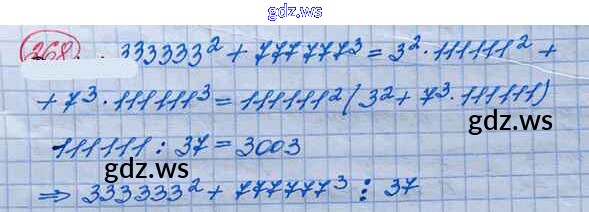 gdz.ws
268
333333² + 777777³ = 3² · 111111² +
+ 7³ · 111111³ = 111111² (3² + 7³ · 111111)
gdz.ws
111111 : 37 = 3003
⇒ 333333² + 777777³ ⋮ 37
gdz.ws